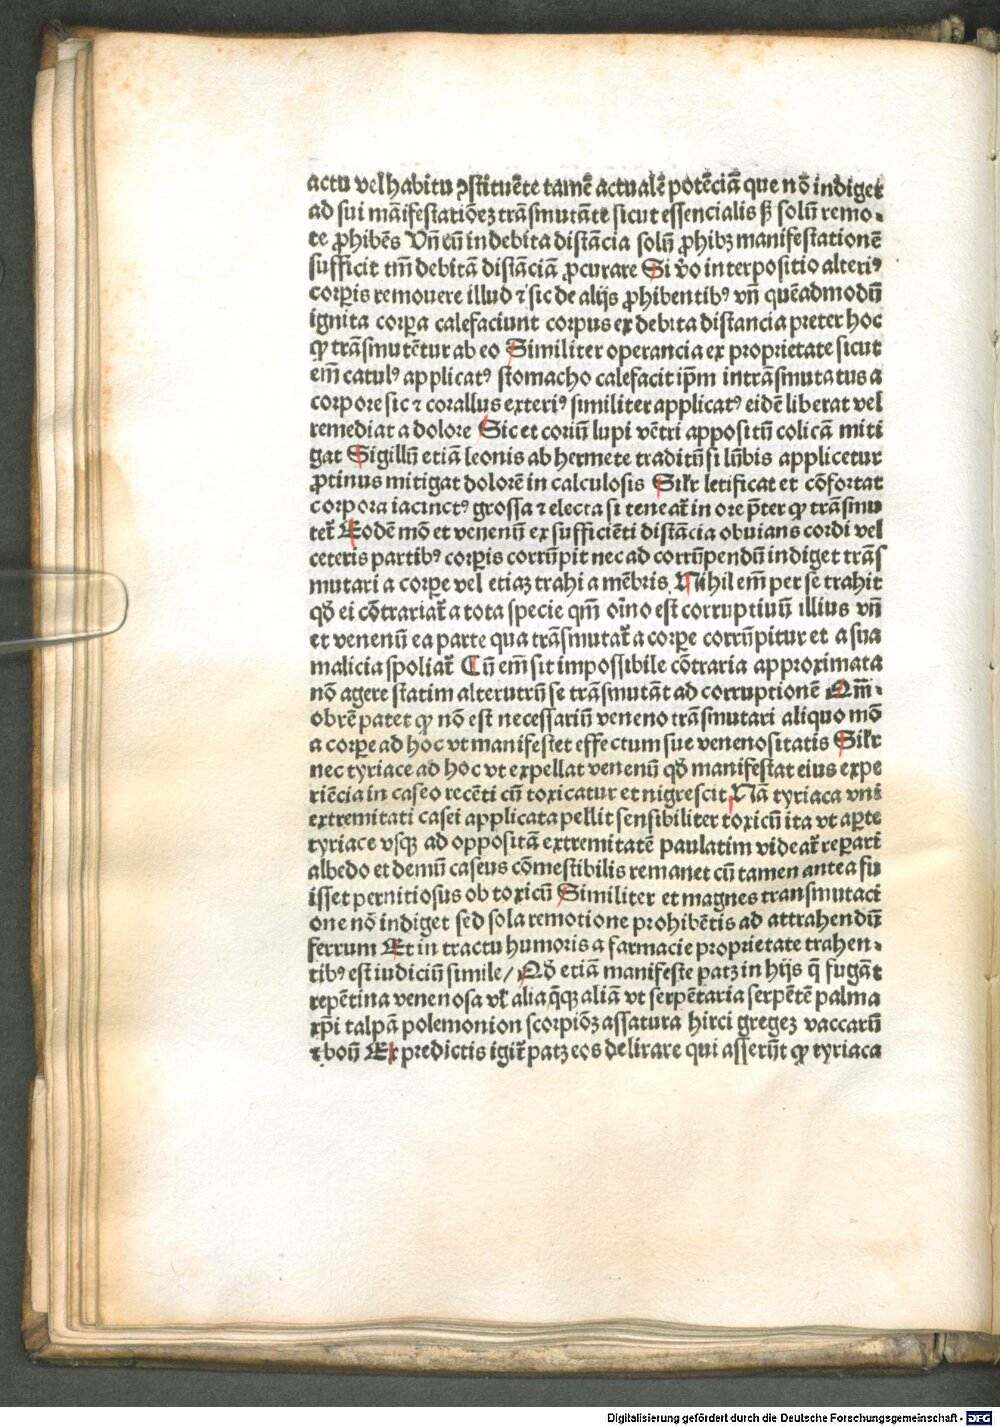 actu vel habitu ꝯstituēte tamē actualē potēciā que nō indiget
ad sui māifestatiōeꝫ trāsmutāte sicut essencialis sꝫ solū remo-
te ꝓhibēs Vn̄ cū indebita distācia solū ꝓhibꝫ manifestationē
sufficit tm̄ debitā distāciā ꝓcurare Si v̊o interpositio alteriꝰ
corꝑis remouere illud ⁊ sic de alijs ꝓhibentibꝰ vn̄ quēadmodū
ignita corꝑa calefaciunt corpus ex debita distancia preter hoc
ꝙ trāsmutētur ab eo Similiter operancia ex proprietate sicut
em̄ catulꝰ applicatꝰ stomacho calefacit ip̄m intrāsmutatus a
corpore sic ⁊ corallus exteriꝰ similiter applicatꝰ eidē liberat vel
remediat a dolore Sic et coriū lupi vētri appositū colicā miti
gat Sigillū etiā leonis ab hermete traditū si lūbis applicetur
ꝓtinus mitigat dolorē in calculosis Silr̄ letificat et cōfortat
corpora iacinctꝰ grossa ⁊ electa si teneat̄ in ore p̄ter ꝙ trāsmu
tet̄ Eodē mō et venenū ex sufficiēti distācia obuians cordi vel
ceteris partibꝰ corꝑis corrūpit nec ad corrūpendū indiget trās
mutari a corꝑe vel etiaꝫ trahi a mēbris Nihil em̄ per se trahit
qd̄ ei cōtrariat̄ a tota specie qm̄ oīno est corruptiuū illius vn̄
et venenū ea parte qua trāsmutat̄ a corꝑe corrūpitur et a sua
malicia spoliat̄ Cū em̄ sit impossibile cōtraria approximata
nō agere statim alterutrū se trāsmutāt ad corruptionē Quā-
obrē patet ꝙ nō est necessariū veneno trāsmutari aliquo mō
a corꝑe ad hoc vt manifestet effectum sue venenositatis Silr̄
nec tyriace ad hoc vt expellat venenū qd̄ manifestat eius expe
riēcia in caseo recēti cū toxicatur et nigrescit Nā tyriaca vni
extremitati casei applicata pellit sensibiliter toxicū ita vt a ꝑte
tyriace vsqꝫ ad oppositā extremitatē paulatim videat̄ reparari
albedo et demū caseus cōmestibilis remanet cū tamen antea fu
isset pernitiosus ob toxicū Similiter et magnes transmutaci
one nō indiget sed sola remotione prohibētis ad attrahendū
ferrum Et in tractu humoris a farmacie proprietate trahen-
tibꝰ est iudiciū simile/ Qd̄ etiā manifeste patꝫ in hijs q̄ fugāt
repētina venenosa vl̄ alia q̄qꝫ aliā vt serpētaria serpētē palma
xp̄i talpā polemonion scorpiōꝫ assatura hirci gregeꝫ vaccarū
⁊ boū Ex predictis igit̄ patꝫ eos delirare qui asserūt ꝙ tyriaca
Digitalisierung gefördert durch die Deutsche Forschungsgemeinschaft - DFG